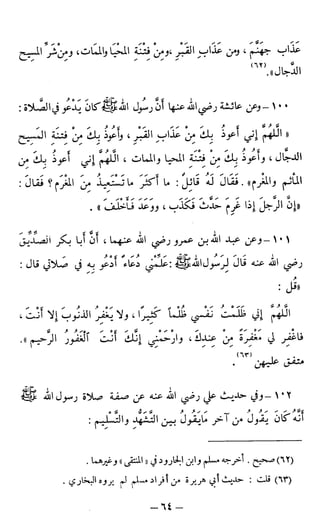 عَذَابِ جَهَنَّمَ ، ومن عَذَابِ القَبْرِ ، ومِنْ فِتْنَةِ المَحْيَا والمَمَات ، ومِنْ شَرِّ المسيح
الدَّجال» .(٦٢)
١٠٠ - وعن عائشة رضي الله عنها أنَّ رسُولَ الله ﷺ كانَ يَدْعُو في الصَّلاة :
« اللَّهُمَّ إني أعوذُ بِكَ مِنْ عَذَابِ القَبْرِ ، وأَعُوذُ بِكَ مِنْ فِتنَةِ المَسِيحِ
الدجَّال ، وأَعُوذُ بِكَ مِنْ فِتْنَةِ المحيا والممات ، اللَّهُمَّ إني أعوذُ بِكَ مِن
المأثم والمغرم» . فَقَالَ لَهُ قَائِلٌ : ما أَكثَرَ ما تَسْتَعِيذُ مِنَ المغْرَمِ؟ فقَالَ :
«إنَّ الرَّجلَ إذا غَرِمَ حَدَّثَ فَكَذَب ، وَوَعَدَ فَأَخْلَفَ» .
١٠١ - وعن عبد الله بن عمرو رضي الله عنهما ، أنَّ أبا بكر الصدِّيقَ
رضي الله عنه قَالَ لِرَسُولِ الله ﷺ : عَلِّمْنِي دُعَاءً أَدْعُو به في صَلاتي قال :
«قُل :
اللَّهُمَّ إني ظَلَمْتُ نَفْسِي ظُلْماً كَثِيراً ، ولا يَغْفِرُ الذنُوبَ إلا أَنْتَ ،
فاغْفِر لي مَغْفِرَةً مِنْ عِندِكَ ، وارْحَمْنِي إنَّكَ أَنْتَ الْغَفُورُ الرَّحِيم» .
متفق عليهن .(٦٣)
١٠٢ - وفي حديث علي رضي الله عنه عن صفة صلاة رسول الله ﷺ
أنَّهُ كَانَ يَقُولُ مِنْ آخرِ مَا يَقُولُ بينَ التَّشَهُّدِ والتَّسْلِيمِ :
(٦٢) صحيح . أخرجه مسلم وابن الجارود في «المنتقى» وغيرهما .
(٦٣) قلت : حديث أبي هريرة من أفراد مسلم لم يروه البخاري .
- ٦٤ -